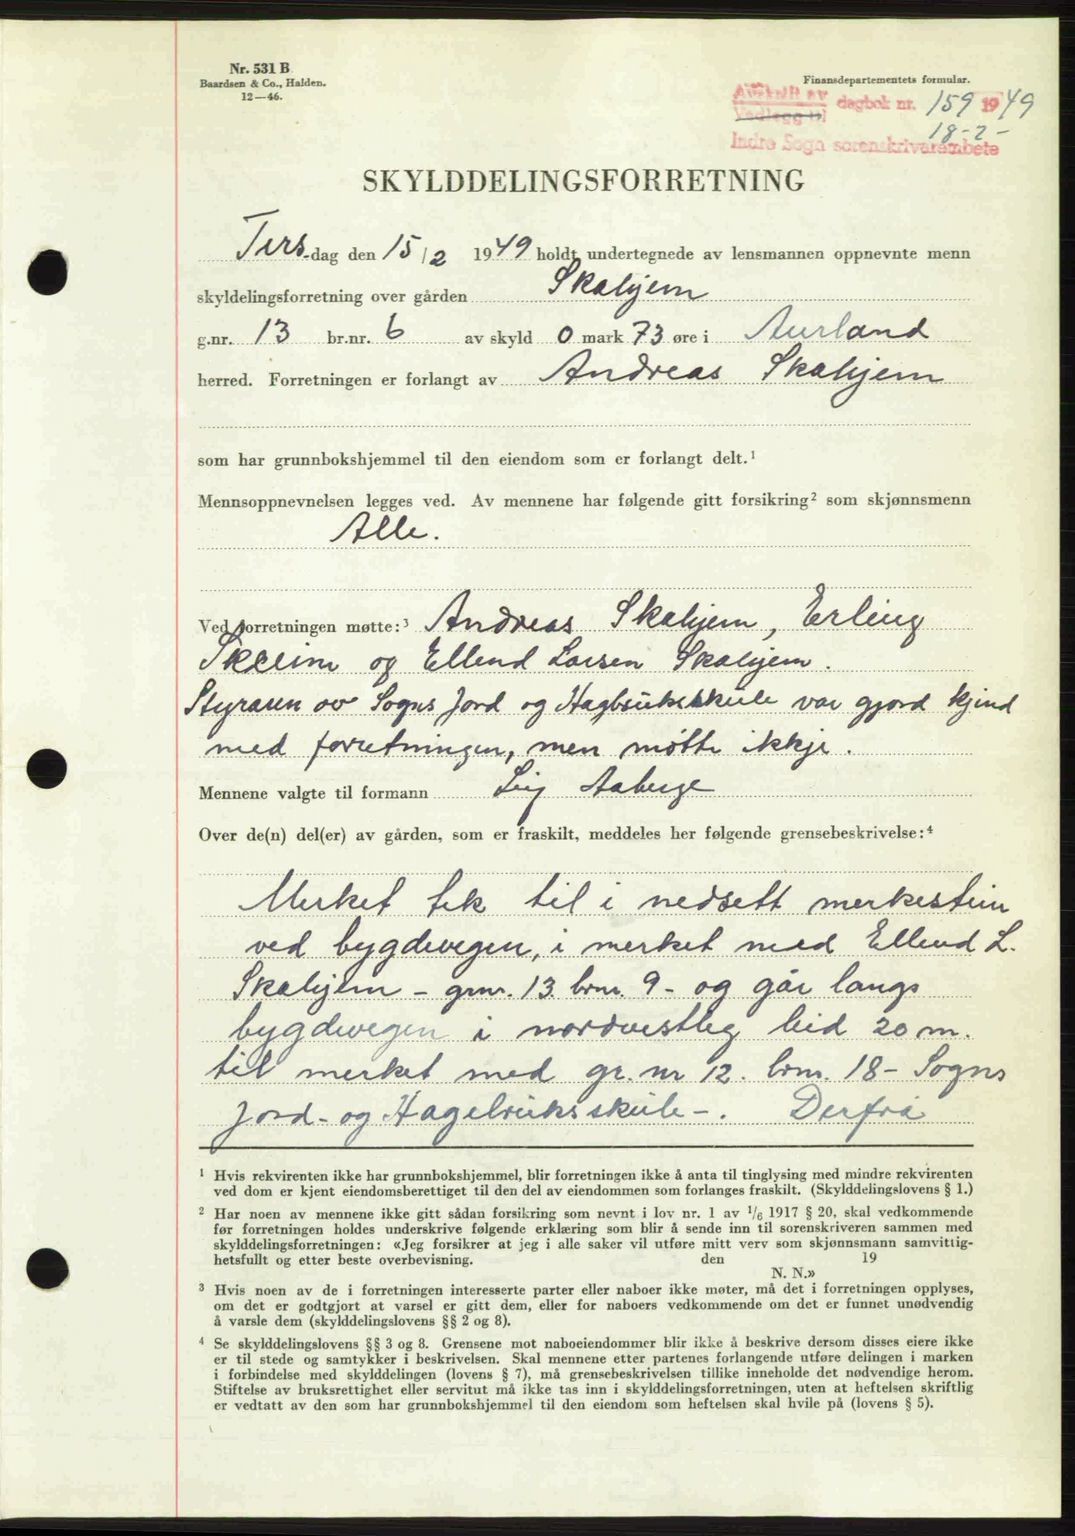 Nr. 531 B
Baardsen & Co., Halden.
12—46.
Finansdepartementets formular.
Avskrift av dagbok nr. 159 1949
Vedlegg til 18-2-
Indre Sogn sorenskrivarembete
SKYLDDELINGSFORRETNING
Tirsdag den 15/2 1949 holdt undertegnede av lensmannen oppnevnte menn
skyldelingsforretning over gården Skahjem
g.nr. 13 br.nr. 6 av skyld 0 mark 73 øre i Aurland
herred. Forretningen er forlangt av Andreas Skahjem
som har grunnbokshjemmel til den eiendom som er forlangt delt.¹
Mennsoppnevnelsen legges ved. Av mennene har følgende gitt forsikring² som skjønnsmenn
Alle.
Ved forretningen møtte:³ Andreas Skahjem, Erling
Skeim og Ellend Larsen Skahjem.
Styraren ov Sogns Jord og Hagbruksskule var gjord kjend
med forretningen, men møtte ikkje.
Mennene valgte til formann Leif Aaberge
Over de(n) del(er) av gården, som er fraskilt, meddeles her følgende grensebeskrivelse:⁴
Merket tek til i nedsett merkestein
ved bygdevegen, i merket med Ellend L.
Skahjem – gnr. 13 brnr. 9 – og går langs
bygdevegen i nordvestleg leid 20 m.
til merket med gr. nr 12. brnr. 18 – Sogns
Jord- og Hagebruksskule –. Derfrå
¹ Hvis rekvirenten ikke har grunnbokshjemmel, blir forretningen ikke å anta til tinglysing med mindre rekvirenten
ved dom er kjent eiendomsberettiget til den del av eiendommen som forlanges fraskilt. (Skylddelingslovens § 1.)
² Har noen av mennene ikke gitt sådan forsikring som nevnt i lov nr. 1 av 1/6 1917 § 20, skal vedkommende
før forretningen holdes underskrive følgende erklæring som blir å sende inn til sorenskriveren sammen med
skylddelingsforretningen: «Jeg forsikrer at jeg i alle saker vil utføre mitt verv som skjønnsmann samvittig-
hetsfullt og etter beste overbevisning. den 19
N. N.»
³ Hvis noen av de i forretningen interesserte parter eller naboer ikke møter, må det i forretningen opplyses,
om det er godtgjort at varsel er gitt dem, eller for naboers vedkommende om det er funnet unødvendig
å varsle dem (skylddelingslovens §§ 2 og 8).
⁴ Se skylddelingslovens §§ 3 og 8. Grensene mot naboeiendommer blir ikke å beskrive dersom disses eiere ikke
er til stede og samtykker i beskrivelsen. Skal mennene etter partenes forlangende utføre delingen i marken
i forbindelse med skylddelingen (lovens § 7), må grensebeskrivelsen tillike inneholde det nødvendige herom.
Stiftelse av bruksrettighet eller servitut må ikke tas inn i skylddelingsforretningen, uten at heftelsen skriftlig
er vedtatt av den som har grunnbokshjemmel til den eiendom som heftelsen skal hvile på (lovens § 5).